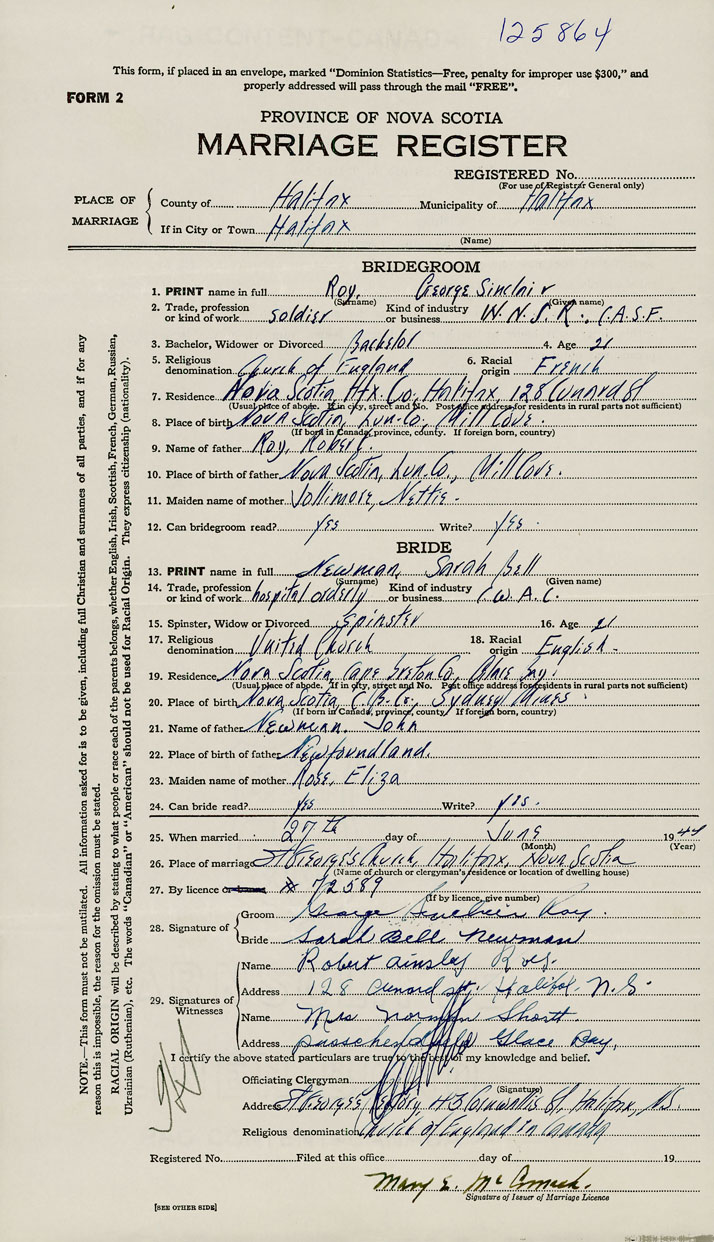 125864
This form, if placed in an envelope, marked "Dominion Statistics—Free, penalty for improper use $300," and
properly addressed will pass through the mail "FREE".
FORM 2
PROVINCE OF NOVA SCOTIA
MARRIAGE REGISTER
REGISTERED No.
(For use of Registrar General only)
PLACE OF MARRIAGE
County of Halifax Municipality of Halifax
If in City or Town Halifax
(Name)
BRIDEGROOM
1. PRINT name in full Roy, George Sinclair
(Surname) (Given name)
2. Trade, profession or kind of work soldier Kind of industry or business W.N.S.R., C.A.S.F.
3. Bachelor, Widower or Divorced Bachelor 4. Age 21
5. Religious denomination Church of England 6. Racial origin French
7. Residence Nova Scotia, Hfx Co, Halifax, 128 Cunard St
(Usual place of abode. If in city, street and No. Post office address for residents in rural parts not sufficient)
8. Place of birth Nova Scotia, Lun. Co., Mill Cove.
(If born in Canada, province, county. If foreign born, country)
9. Name of father Roy, Robert.
10. Place of birth of father Nova Scotia, Lun. Co., Mill Cove.
11. Maiden name of mother Jollimore, Nettie.
12. Can bridegroom read? yes Write? yes.
BRIDE
13. PRINT name in full Newman, Sarah Bell
(Surname) (Given name)
14. Trade, profession or kind of work hospital orderly Kind of industry or business C.W.A.C.
15. Spinster, Widow or Divorced Spinster 16. Age 21
17. Religious denomination United Church 18. Racial origin English.
19. Residence Nova Scotia, Cape Breton Co, Glace Bay.
(Usual place of abode. If in city, street and No. Post office address for residents in rural parts not sufficient)
20. Place of birth Nova Scotia, C.B. Co., Sydney Mines
(If born in Canada, province, county. If foreign born, country)
21. Name of father Newman, John
22. Place of birth of father Newfoundland.
23. Maiden name of mother Rose, Eliza
24. Can bride read? yes Write? yes.
25. When married 27th day of June 1944
(Month) (Year)
26. Place of marriage St George's Church, Halifax, Nova Scotia
(Name of church or clergyman's residence or location of dwelling house)
27. By licence or banns # 72589
(If by licence, give number)
28. Signature of
Groom George Sinclair Roy.
Bride Sarah Bell Newman
29. Signatures of Witnesses
Name Robert Ainsley Roy.
Address 128 Cunard st. Halifax N.S.
Name Mrs Norman Shortt
Address Passchendaele Glace Bay,
I certify the above stated particulars are true to the best of my knowledge and belief.
Officiating Clergyman
(Signature)
Address St George's Rectory, 43 Cornwallis St, Halifax, N.S.
Religious denomination Church of England in Canada
Registered No. Filed at this office day of 19
Mary E. McCormack.
Signature of Issuer of Marriage Licence
[SEE OTHER SIDE]
NOTE.—This form must not be mutilated. All information asked for is to be given, including full Christian and surnames of all parties, and if for any
reason this is impossible, the reason for the omission must be stated.
RACIAL ORIGIN will be described by stating to what people or race each of the parents belongs, whether English, Irish, Scottish, French, German, Russian,
Ukrainian (Ruthenian), etc. The words "Canadian" or "American" should not be used for Racial Origin. They express citizenship (nationality).